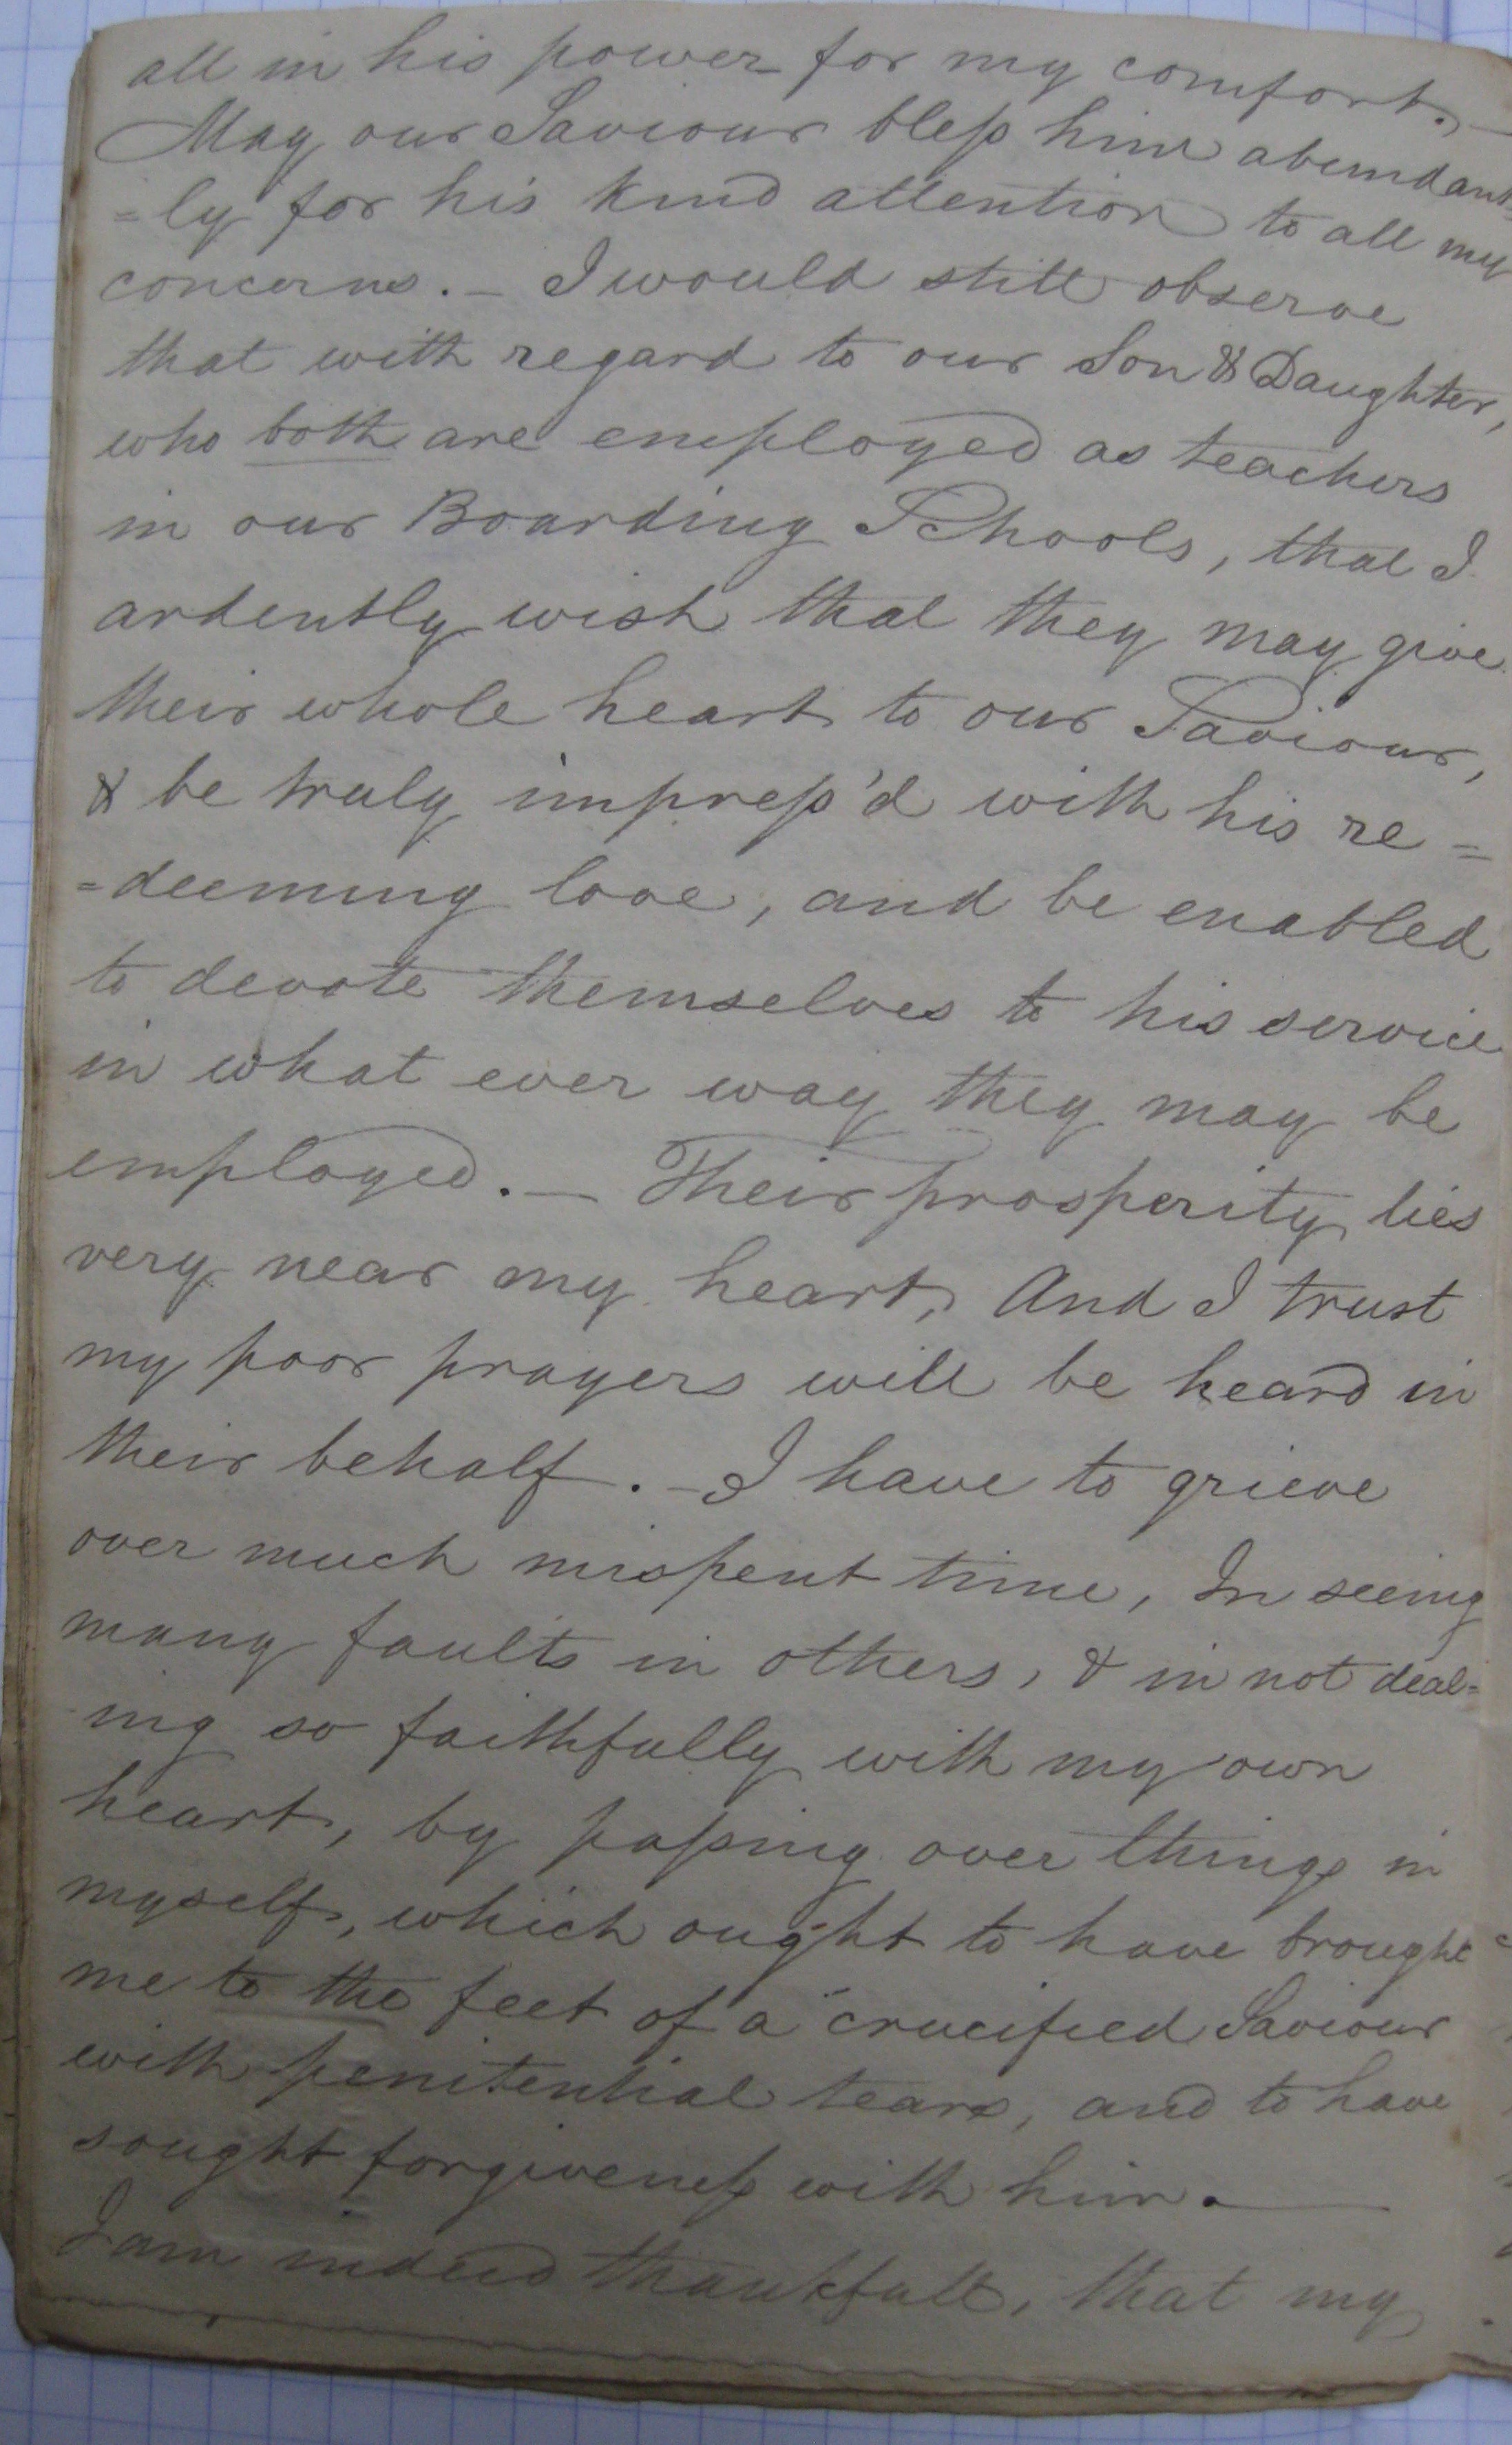 all in his power for my comfort. —
May our Saviour bleſs him abundant=
=ly for his kind attention to all my
concerns. — I would still observe
that with regard to our Son & Daughter,
who both are employed as teachers
in our Boarding Schools, that I
ardently wish that they may give
their whole heart to our Saviour,
& be truly impreſs'd with his re=
=deeming love, and be enabled
to devote themselves to his service
in what ever way they may be
employed. — Their prosperity lies
very near my heart, And I trust
my poor prayers will be heard in
their behalf. — I have to grieve
over much mispent time, In seeing
many faults in others, & in not deal=
ing so faithfully with my own
heart, by paſsing over things in
myself, which ought to have brought
me to the feet of a crucified Saviour
with penitential tears, and to have
sought forgiveneſs with him. —
I am indeed thankfull, that my